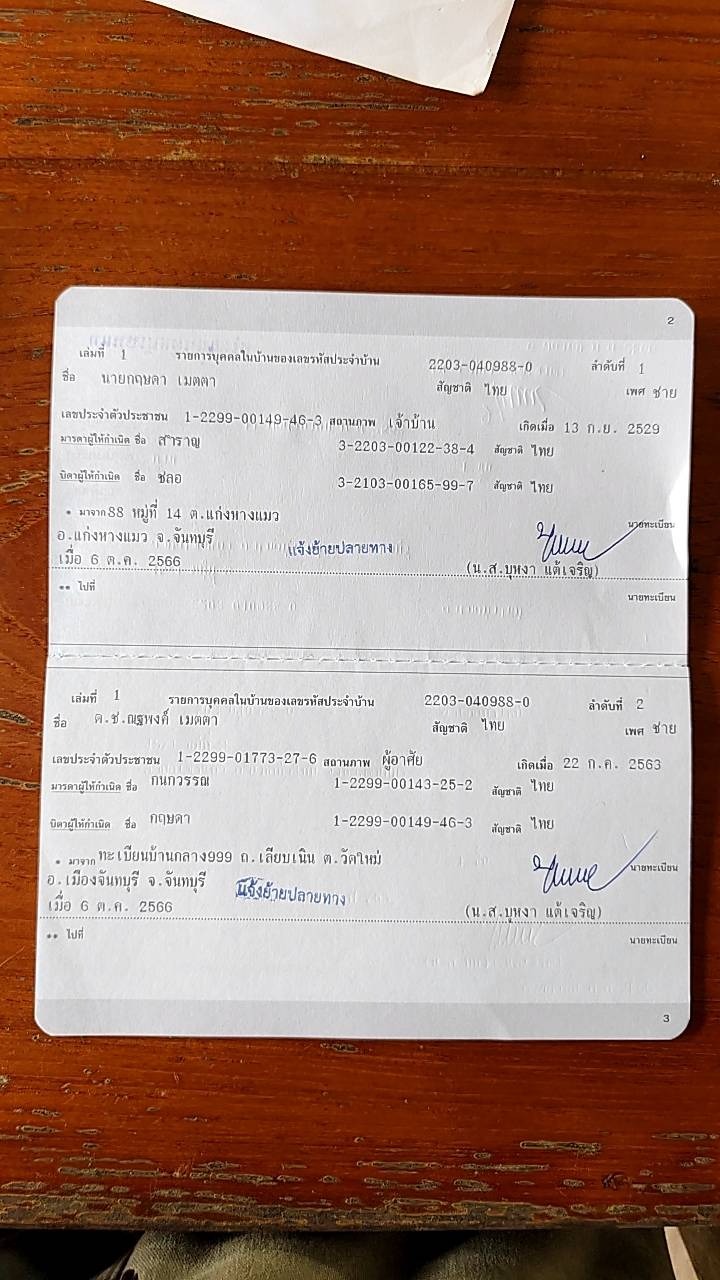 2
เล่มที่ 1 รายการบุคคลในบ้านของเลขรหัสประจำบ้าน 2203-040988-0 ลำดับที่ 1
ชื่อ นายกฤษดา เมตตา สัญชาติ ไทย เพศ ชาย
เลขประจำตัวประชาชน 1-2299-00149-46-3 สถานภาพ เจ้าบ้าน เกิดเมื่อ 13 ก.ย. 2529
มารดาผู้ให้กำเนิด ชื่อ สำราญ 3-2203-00122-38-4 สัญชาติ ไทย
บิดาผู้ให้กำเนิด ชื่อ ชลอ 3-2103-00165-99-7 สัญชาติ ไทย
* มาจาก 88 หมู่ที่ 14 ต.แก่งหางแมว
นายทะเบียน
อ.แก่งหางแมว จ.จันทบุรี
แจ้งย้ายปลายทาง
เมื่อ 6 ต.ค. 2566 (น.ส.บุหงา แต้เจริญ)
** ไปที่ นายทะเบียน
เล่มที่ 1 รายการบุคคลในบ้านของเลขรหัสประจำบ้าน 2203-040988-0 ลำดับที่ 2
ชื่อ ด.ช.ณฐพงค์ เมตตา สัญชาติ ไทย เพศ ชาย
เลขประจำตัวประชาชน 1-2299-01773-27-6 สถานภาพ ผู้อาศัย เกิดเมื่อ 22 ก.ค. 2563
มารดาผู้ให้กำเนิด ชื่อ กนกวรรณ 1-2299-00143-25-2 สัญชาติ ไทย
บิดาผู้ให้กำเนิด ชื่อ กฤษดา 1-2299-00149-46-3 สัญชาติ ไทย
* มาจาก ทะเบียนบ้านกลาง999 ถ.เลียบเนิน ต.วัดใหม่ นายทะเบียน
อ.เมืองจันทบุรี จ.จันทบุรี แจ้งย้ายปลายทาง
เมื่อ 6 ต.ค. 2566 (น.ส.บุหงา แต้เจริญ)
** ไปที่ นายทะเบียน
3